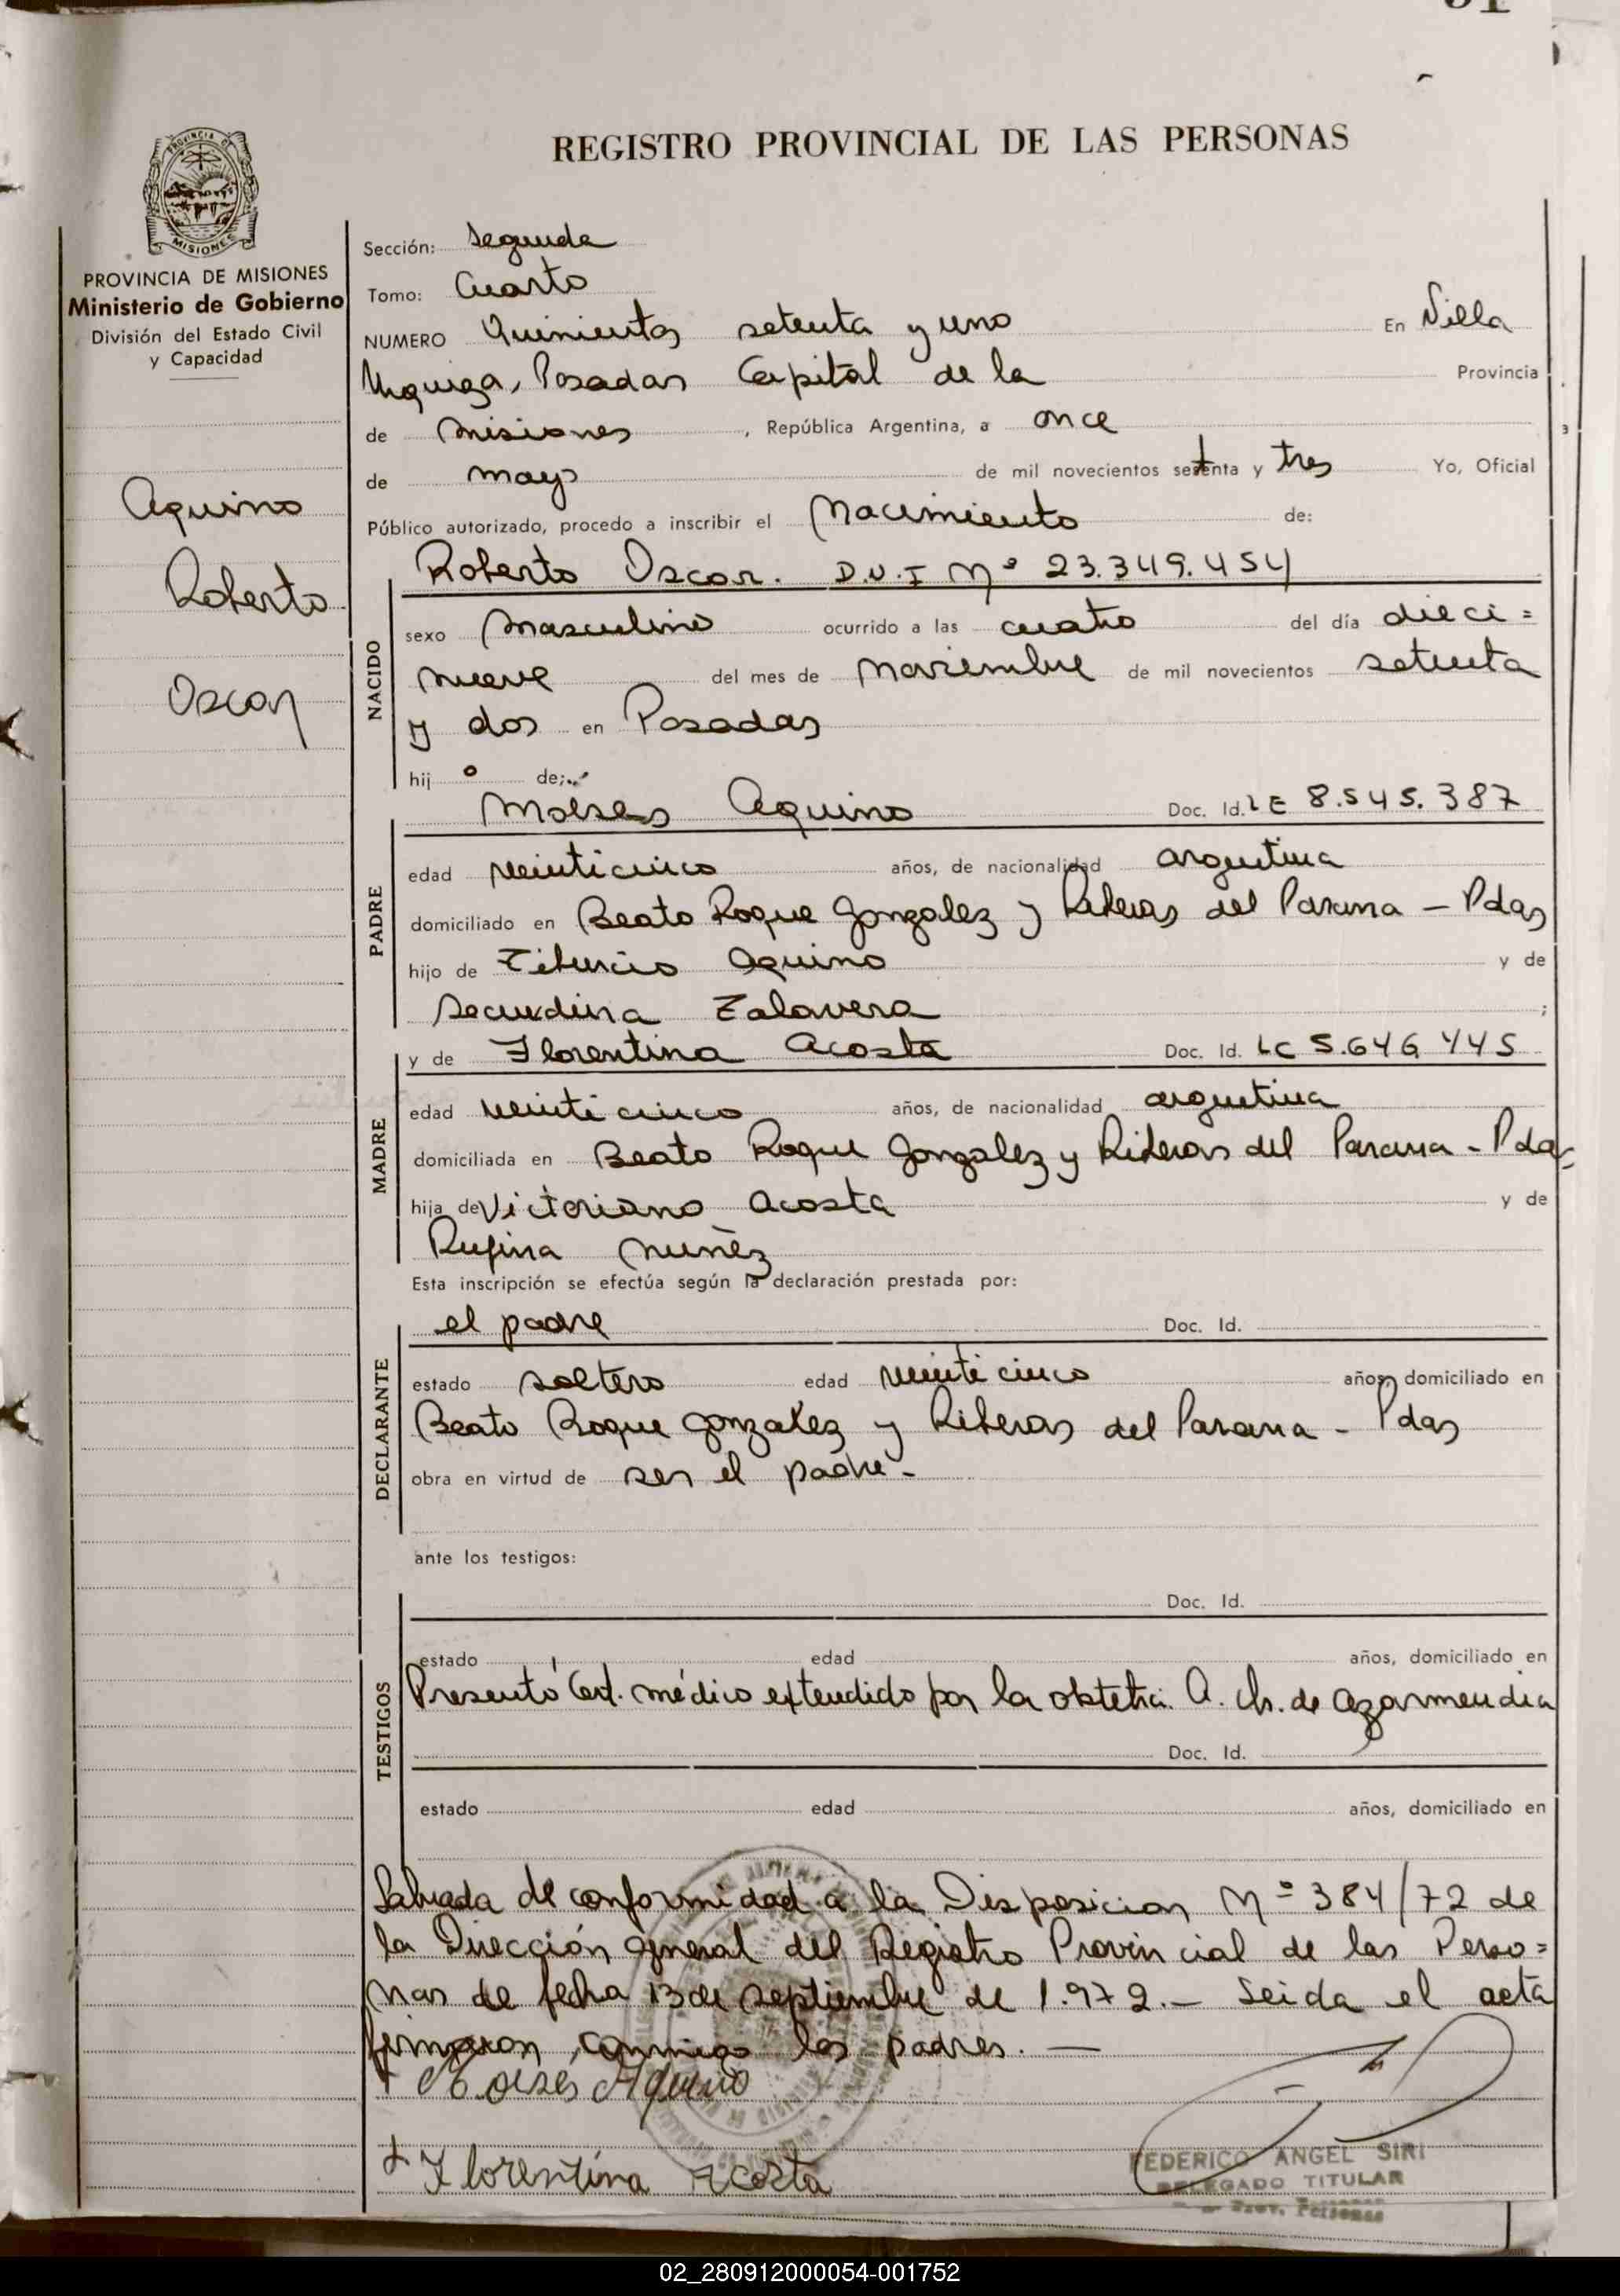 REGISTRO PROVINCIAL DE LAS PERSONAS
PROVINCIA DE MISIONES
Ministerio de Gobierno
División del Estado Civil
y Capacidad
Aquino
Roberto
Oscar
Sección: Segunda
Tomo: Cuarto
NUMERO Quinientos setenta y uno En Villa
Urquiza, Posadas Capital de la Provincia
de Misiones, República Argentina, a once
de mayo de mil novecientos setenta y tres Yo, Oficial
Público autorizado, procedo a inscribir el Nacimiento de:
Roberto Oscar. D.N.I Nº 23.349.454
NACIDO
sexo Masculino ocurrido a las cuatro del día dieci=
nueve del mes de Noviembre de mil novecientos setenta
y dos en Posadas
hijo de;
Moises Aquino Doc. Id. LE 8.545.387
PADRE
edad veinticinco años, de nacionalidad argentina
domiciliado en Beato Roque Gonzalez y Riberas del Parana - Pdas
hijo de Tiburcio Aquino y de
Secundina Talavera;
y de Florentina Acosta Doc. Id. LC 5.646 445
MADRE
edad veinticinco años, de nacionalidad argentina
domiciliada en Beato Roque Gonzalez y Riberas del Parana - Pdas
hija de Victoriano Acosta y de
Rufina Nuñez
Esta inscripción se efectúa según la declaración prestada por:
el padre Doc. Id.
DECLARANTE
estado soltero edad veinticinco años, domiciliado en
Beato Roque Gonzalez y Riberas del Parana - Pdas
obra en virtud de ser el padre-
ante los testigos:
Doc. Id.
TESTIGOS
estado edad años, domiciliado en
Presentó Cert. médico extendido por la obstetri. A. Ch. de Azarmendia
Doc. Id.
estado edad años, domiciliado en
Labrada de conformidad a la Disposicion Nº 384/72 de
la Dirección General del Registro Provincial de las Perso=
nas de fecha 13 de septiembre de 1.972.- Leida el acta
firmaron conmigo los padres. —
Moisés Aquino
Florentina Acosta
FEDERICO ANGEL SIRI
DELEGADO TITULAR
Prov. Personas
02_280912000054-001752